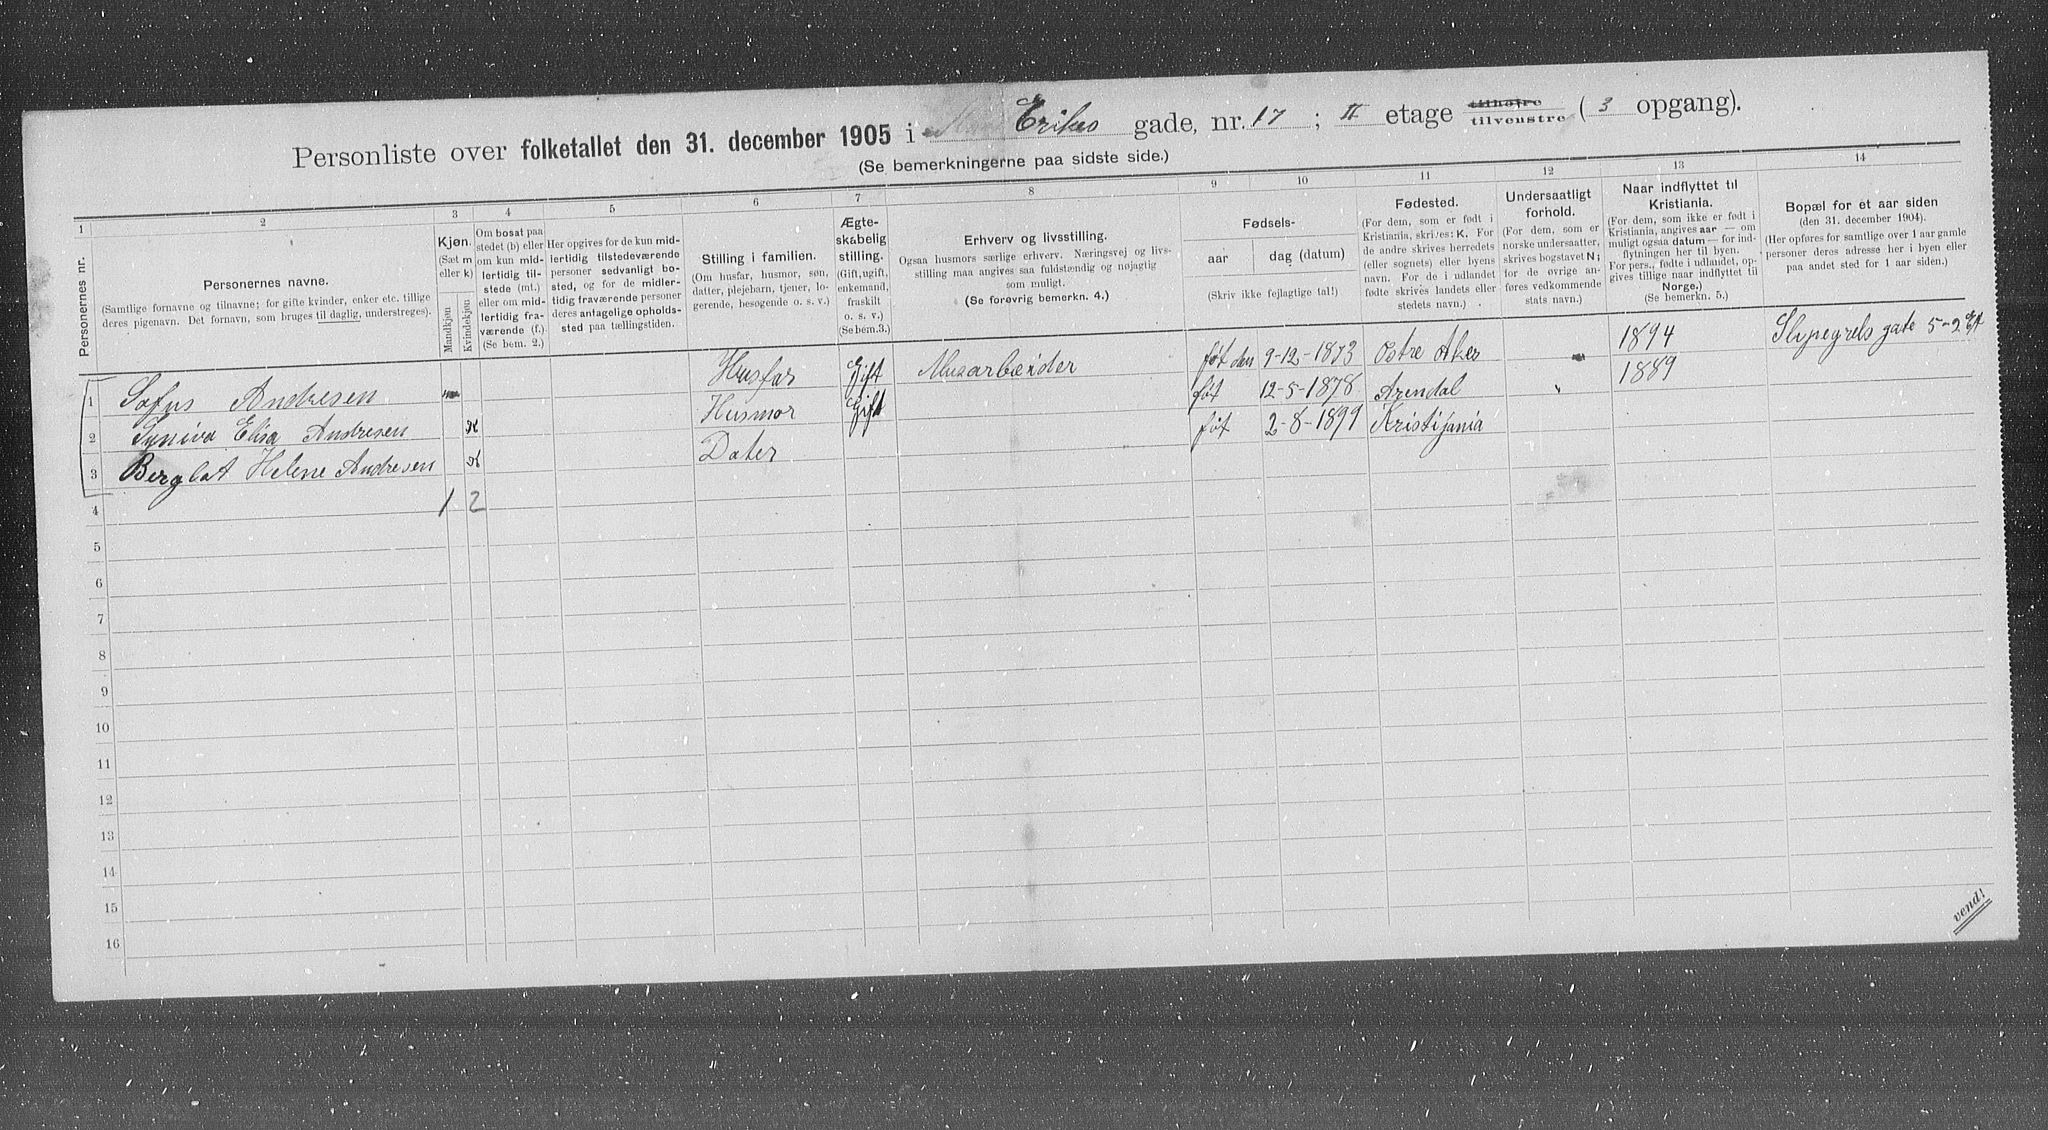 Personliste over folketallet den 31. december 1905 i Erikes gade, nr. 17 ; II etage tilhøjre tilvenstre ( 3 opgang).
(Se bemerkningerne paa sidste side.)
1 2 3 4 5 6 7 8 9 10 11 12 13 14
Personernes nr.
Personernes navne.
(Samtlige fornavne og tilnavne; for gifte kvinder, enker etc. tillige
deres pigenavn. Det fornavn, som bruges til daglig, understreges).
Kjøn.
(Sæt m
eller k)
Mandkjøn
Kvindekjøn
Om bosat paa
stedet (b) eller
om kun mid-
lertidig til-
stede (mt.)
eller om mid-
lertidig fra-
værende (f.)
(Se bem. 2.)
Her opgives for de kun mid-
lertidig tilstedeværende
personer sedvanligt bo-
sted, og for de midler-
tidig fraværende personer
deres antagelige opholds-
sted paa tællingstiden.
Stilling i familien.
(Om husfar, husmor, søn,
datter, plejebarn, tjener, lo-
gerende, besøgende o. s. v.)
Ægte-
skabelig
stilling.
(Gift, ugift,
enkemand,
fraskilt
o. s. v.)
(Se bem.3.)
Erhverv og livsstilling.
Ogsaa husmors særlige erhverv. Næringsvej og livs-
stilling maa angives saa fuldstændig og nøjagtig
som muligt.
(Se forøvrig bemerkn. 4.)
Fødsels-
aar
dag (datum)
(Skriv ikke fejlagtige tal!)
Fødested.
(For dem, som er født i
Kristiania, skrives: K. For
de andre skrives herredets
(eller sognets) eller byens
navn. For de i udlandet
fødte skrives landets eller
stedets navn.)
Undersaatligt
forhold.
(For dem, som er
norske undersaatter,
skrives bogstavet N;
for de øvrige an-
føres vedkommende
stats navn.)
Naar indflyttet til
Kristiania.
(For dem, som ikke er født i
Kristiania, angives aar — om
muligt ogsaa datum — for ind-
flytningen her til byen.
For pers., fødte i udlandet, op-
gives tillige naar indflyttet til
Norge.)
(Se bemerkn. 5.)
Bopæl for et aar siden
(den 31. december 1904).
(Her opføres for samtlige over 1 aar gamle
personer deres adresse her i byen eller
paa andet sted for 1 aar siden.)
1 Sofus Andresen m Husfar Gift Murarbeider føt den 9-12-1873 Østre Aker 1894 Slypegrels gate 5-2 Et
2 Syniva Elisa Andresen K Husmor Gift føt 12-5-1878 Arendal " 1889
3 Berglot Helene Andresen K Dater føt 2-8-1899 Kristijania
4 1 2
5
6
7
8
9
10
11
12
13
14
15
16
vend!